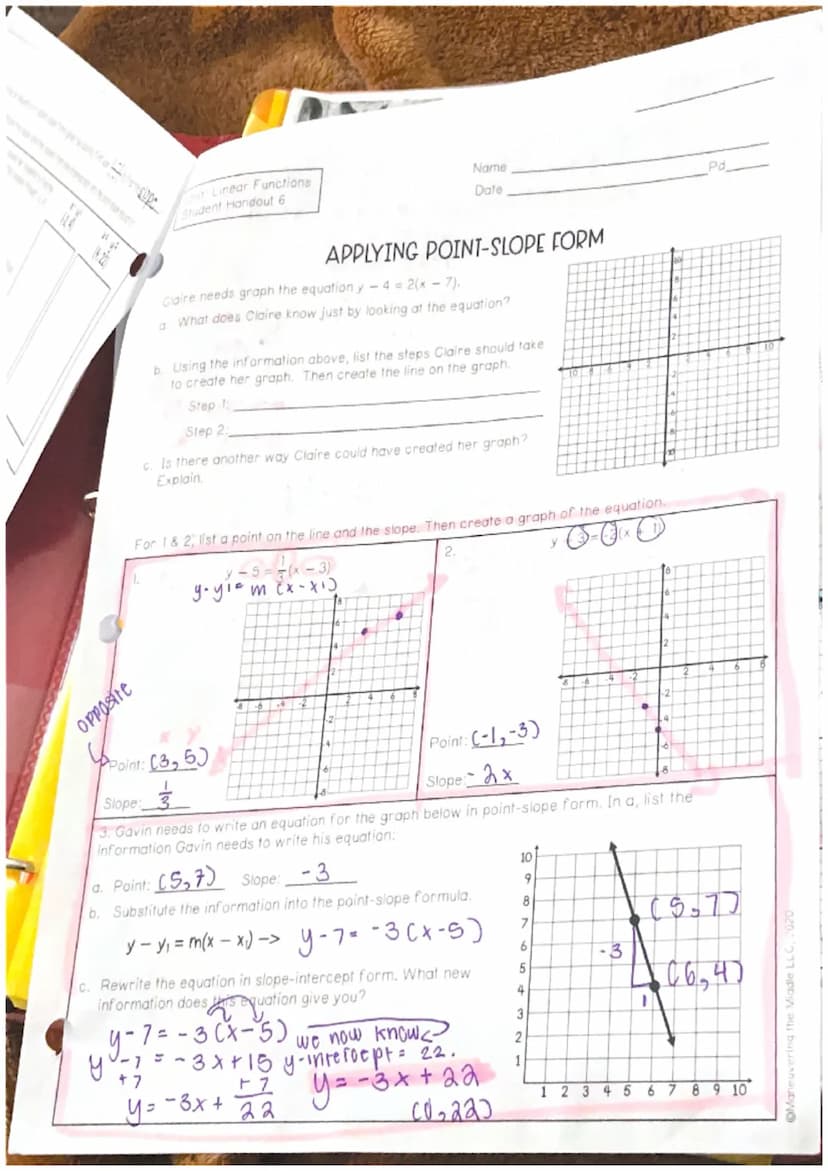 Linear Functions
Student Handout 6
Name
Pd
Date
APPLYING POINT-SLOPE FORM
Claire needs graph the equation y − 4 = 2(x − 7).
a. What does Claire know just by looking at the equation?
b. Using the information above, list the steps Claire should take
to create her graph. Then create the line on the graph.
Step 1:
Step 2:
c. Is there another way Claire could have created her graph?
Explain.
For 1 & 2, list a point on the line and the slope. Then create a graph of the equation.
1.
y − 5 = 1/3(x − 3)
y-y1= m (x-x1)
opposite
x y
Point: (3,5)
Slope: 1/3
2.
y + 3 = -2(x + 1)
Point: (-1,-3)
Slope: -2x
3. Gavin needs to write an equation for the graph below in point-slope form. In a, list the
information Gavin needs to write his equation:
a. Point: (5,7) Slope: -3
b. Substitute the information into the point-slope formula.
y − y₁ = m(x − x₁) −> y-7= -3(x-5)
c. Rewrite the equation in slope-intercept form. What new
information does this equation give you?
y-7= -3(x-5) we now know
y-7 = -3x+15 y-intercept = 22.
+7 +7
y= -3x+ 22
y= -3x + 22
(0,22)
(5,7)
-3
(6,4)
1
10
9
8
7
6
5
4
3
2
1
1 2 3 4 5 6 7 8 9 10
©Maneuvering the Middle LLC, 2020